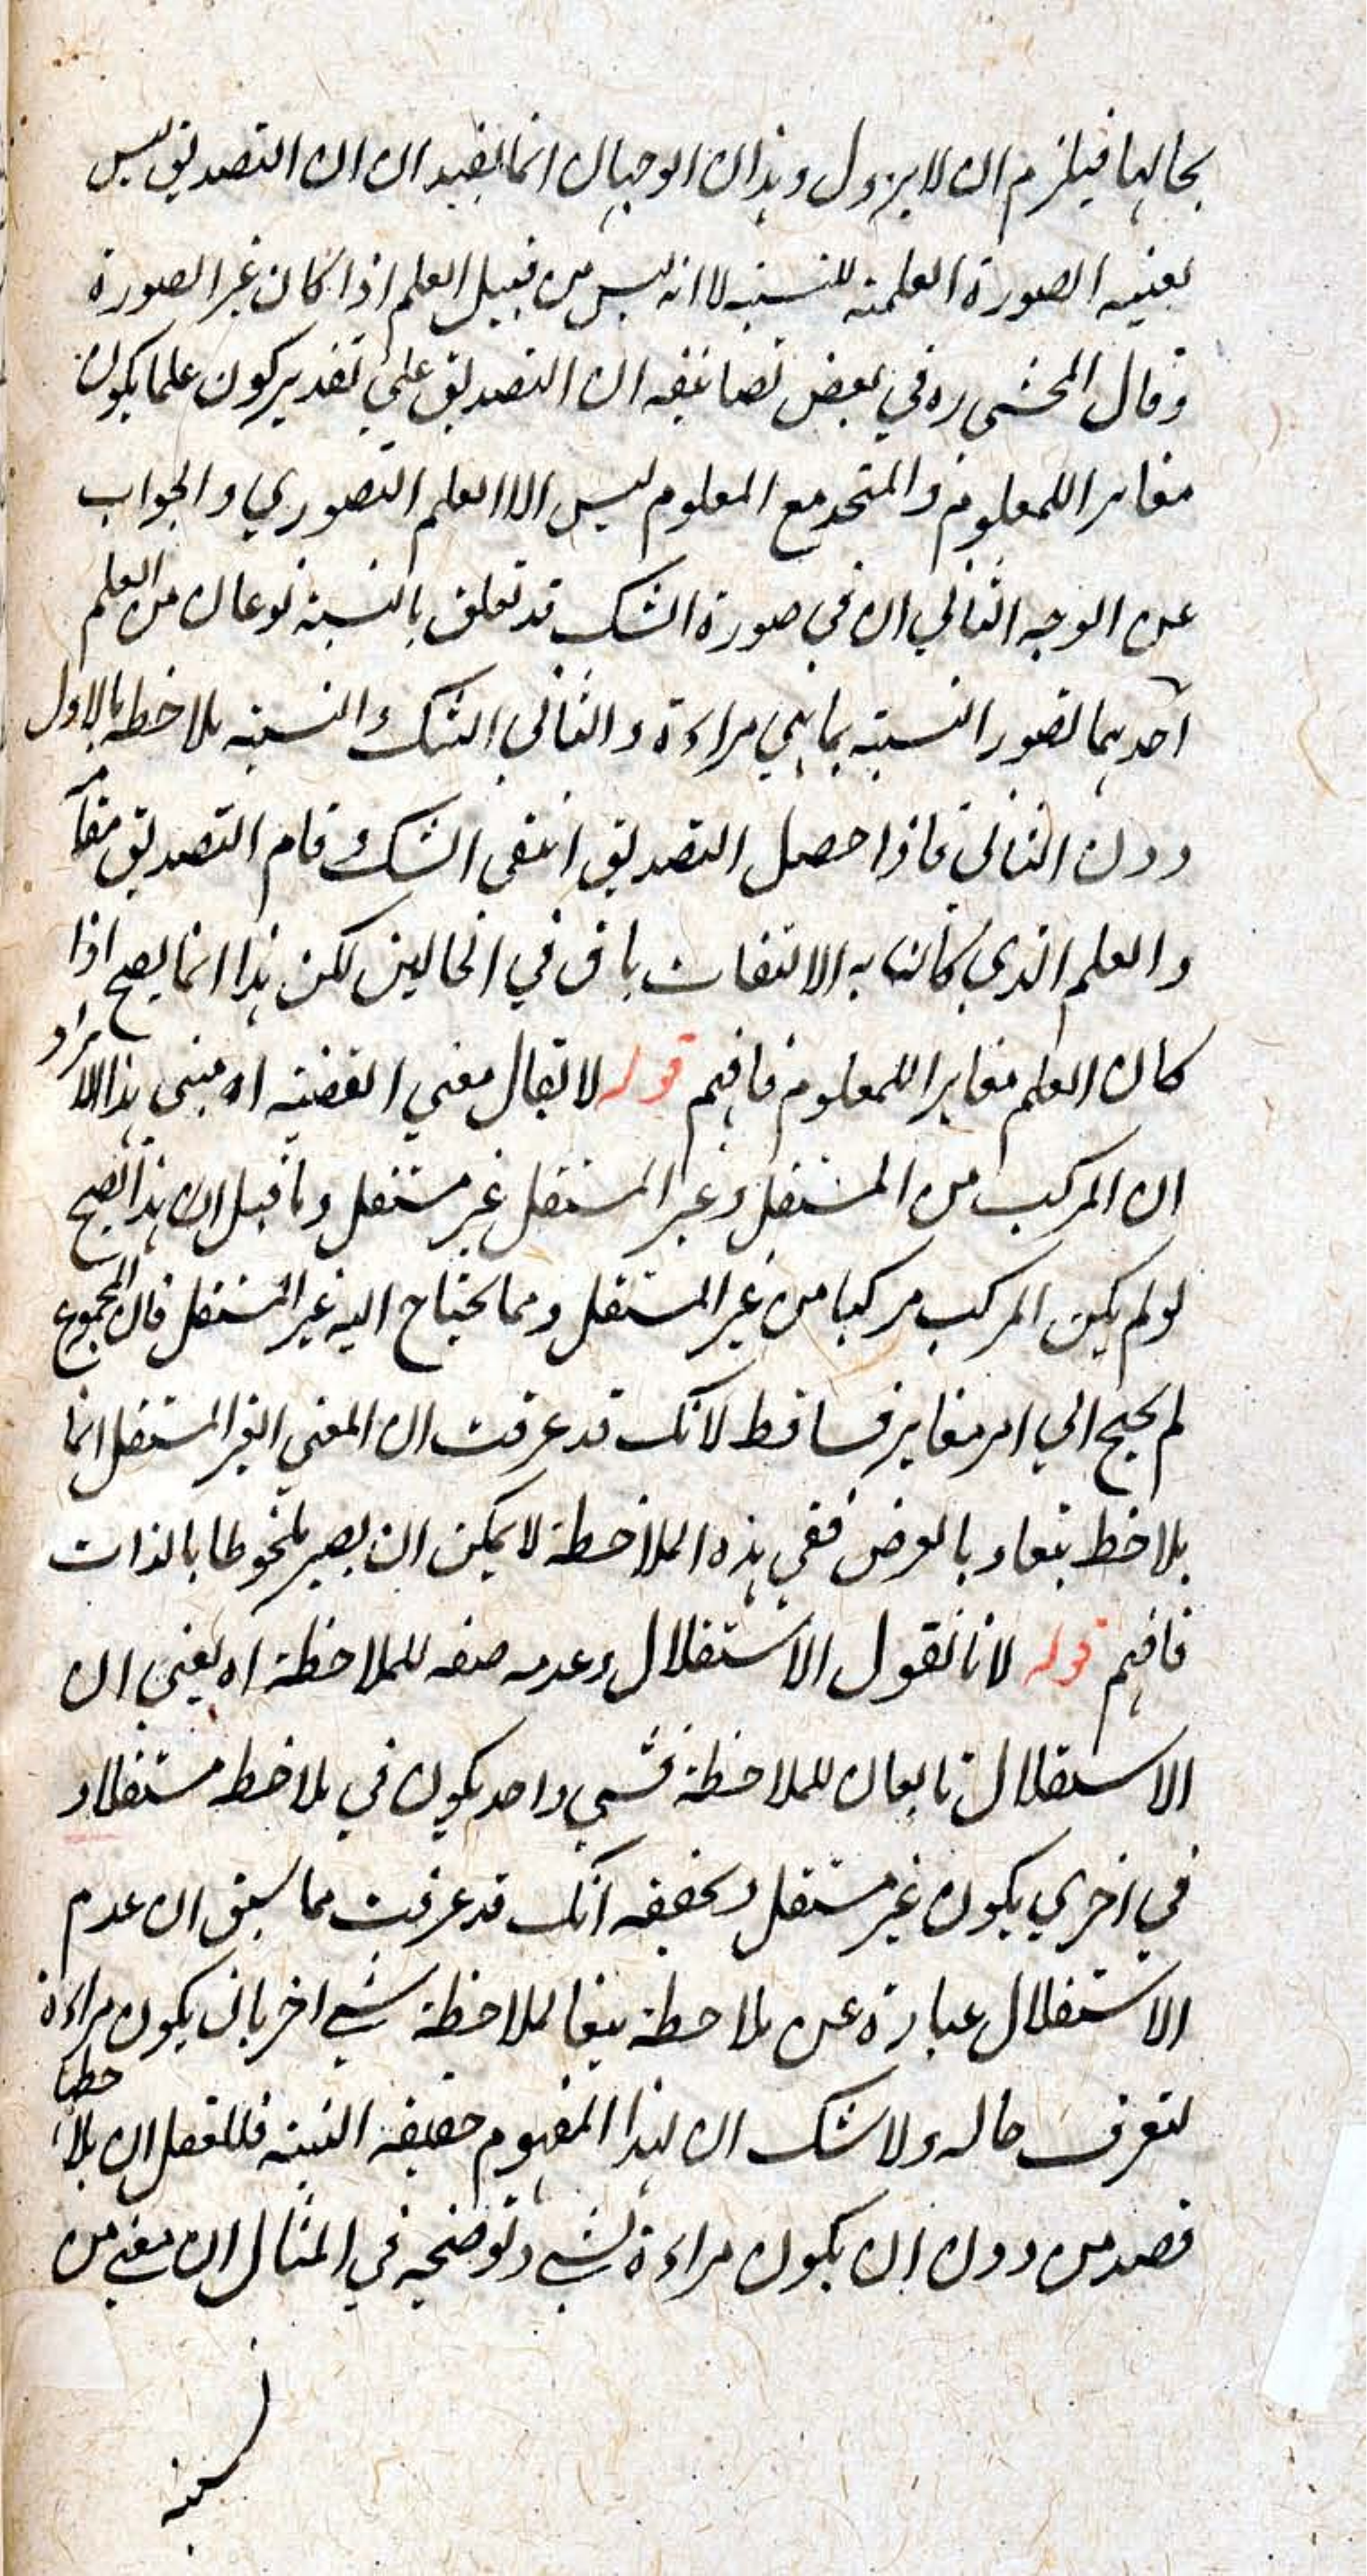 بحالها فيلزم ان لا يزول وهذان الوجهان انما يفيدان ان التصديق ليس
بعينه الصورة العلمية للنسبة لا انه ليس من قبيل العلم اذا كان غير الصورة
وقال المحشي ره في بعض تصانيفه ان التصديق علي تقدير كون علما يكون
مغايرا للمعلوم والمتحد مع المعلوم ليس الا العلم التصوري والجواب
عن الوجه الثاني ان في صورة الشك قد تعلق بالنسبة نوعان من العلم
احدهما تصور النسبة بما هي مراءة والثاني الشك والنسبة ملاحظه بالاول
دون الثاني فاذا حصل التصديق انتفي الشك وقام التصديق مقامه
والعلم الذي كانا به الالتفات باق في الحالين لكن هذا انما يصح اذا
كان العلم مغايرا للمعلوم فافهم قوله لا يقال معني القضية اه مبنى هذا الايراد
ان المركب من المستقل وغير المستقل غير مستقل وما قيل ان هذا يصح
لو لم يكن المركب مركبا من غير المستقل ومما يحتاج اليه غير المستقل فان المجموع
لم يحتج الي امر مغاير فساقط لانك قد عرفت ان المعني الغير المستقل انما
يلاحظ تبعا وبالعرض ففي هذه الملاحظة لا يمكن ان يصير ملحوظا بالذات
فافهم قوله لانا نقول الاستقلال وعدمه صفه للملاحظة اه يعني ان
الاستقلال تابعان للملاحظة فشيي واحد يكون في ملاحظه مستقلا و
في اخري يكون غير مستقل وتحقيقه انك قد عرفت مما سبق ان عدم
الاستقلال عبارة عن ملاحظة تبعا لملاحظة شيي اخر بان يكون مراءة
لتعرف حاله ولا شك ان لهذا المفهوم حقيقة النسبة فللعقل ان يلاحظها
قصد من دون ان يكون مراءة لشيي وتوضيحه في المثال ان معني من
لسبة